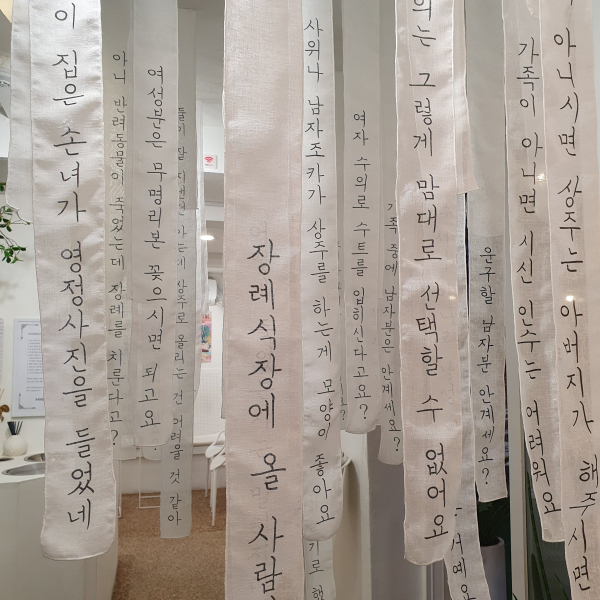 이 집은 손녀가 영정사진을 들었네
아니 반려동물이 죽었는데 장례를 치룬다고?
여성분은 무명리본 꽂으시면 되고요.
상주로 올리는 건 어려울 것 같아
장례식장에 올 사람
사위나 남자조카가 상주를 하는게 모양이 좋아요
기로 했
여자 수의로 수트를 입히신다고요?
가족 중에 남자분은 안계세요?
의는 그렇게 맘대로 선택할 수 없어요
거예요
운구할 남자분 안계세요?
가족이 아니면 시신 인수는 어려워요
아니시면 상주는 아버지가 해주시면